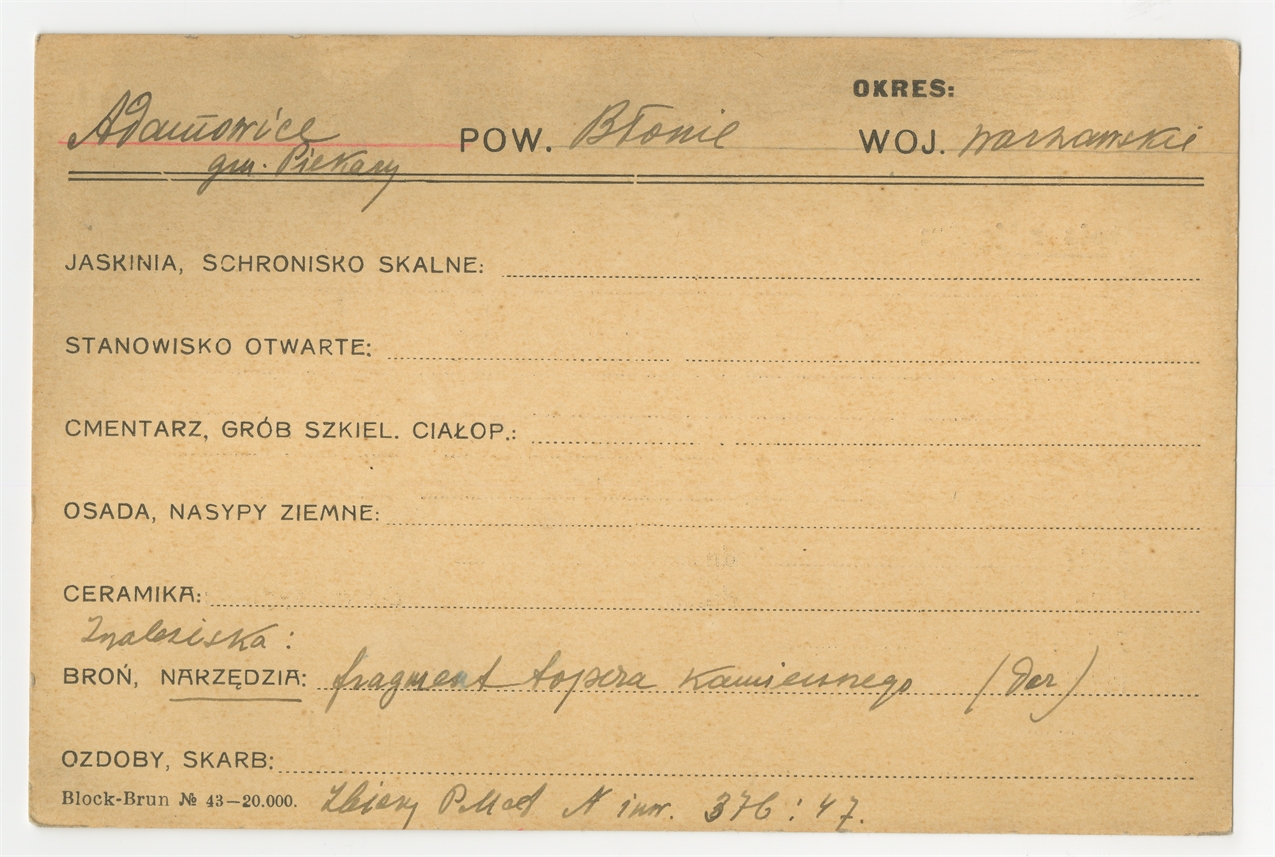 OKRES:
Adamowice POW. Błonie WOJ. warszawskie
gm. Piekary
JASKINIA, SCHRONISKO SKALNE:
STANOWISKO OTWARTE:
CMENTARZ, GRÓB SZKIEL. CIAŁOP.:
OSADA, NASYPY ZIEMNE:
CERAMIKA:
Znaleziska:
BROŃ, NARZĘDZIA: fragment topora kamiennego (dar)
OZDOBY, SKARB:
Block-Brun № 43—20.000. Zbiory PMA N inw. 376:47.